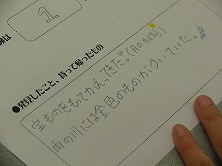 は
1
●発見したこと、持って帰ったもの
宝ものをもってかえってきた。(月の材ち)
雨の川には金色のものがういていた。